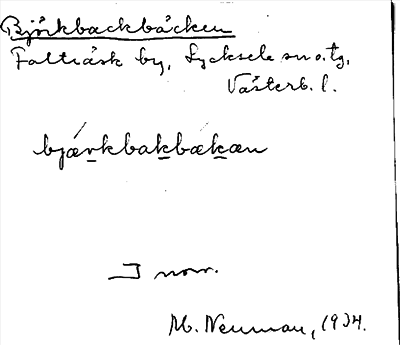 Björkbackbäcken
Falträsk by, Lycksele sn o. tg,
Västerb. l.
bjǽrkbakbækæn
I norr.
M. Neuman, 1934.